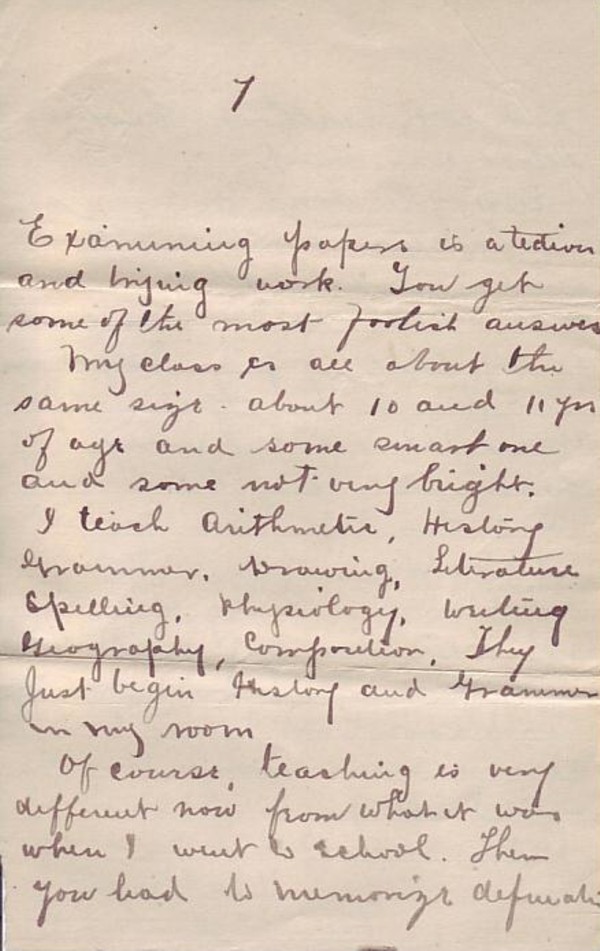 7
Examining papers is a tedious
and trying work. You get
some of the most foolish answe
My class is all about the
same size. about 10 and 11 yrs
of age and some smart one
and some not very bright.
I teach Arithmetic, History
Grammer, Drawing, Literature
Spelling, Physiology, Writing
Geography, Composition, They
Just begin History and Grammer
in my room
Of course, teaching is very
different now from what it was
when I went to school. Then
you had to memorize definati